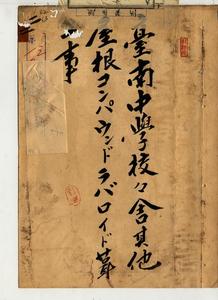 臺南中學校々舍其他
屋根コンパウンドラバロイド葺
工事